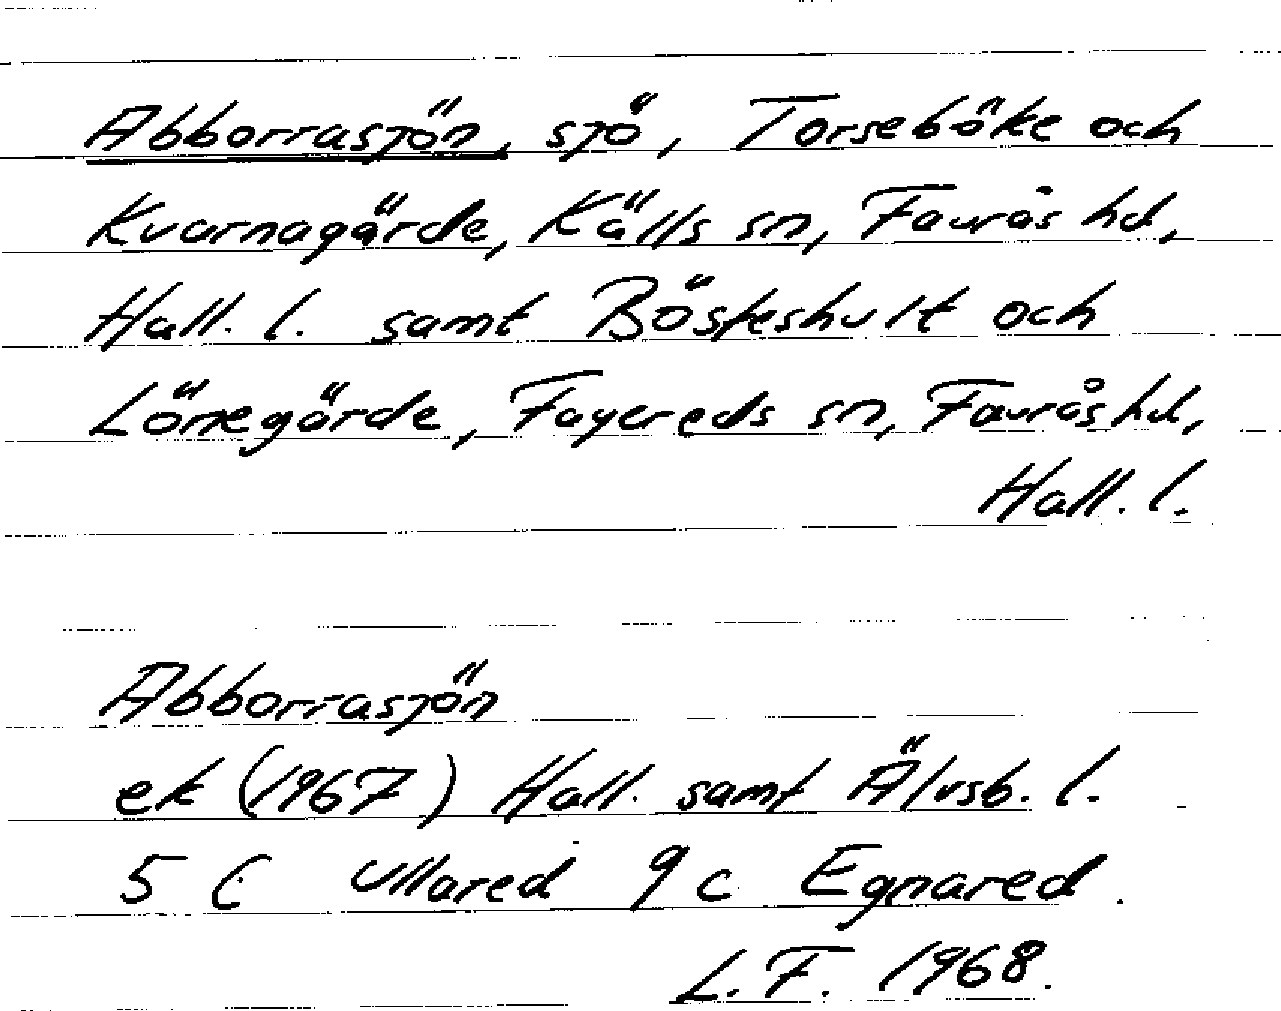 Abborrasjön, sjö, Torseböke och
Kvarnagärde, Källs sn, Faurås hd,
Hall. l. samt Bösteshult och
Lönegärde, Fagereds sn, Faurås hd,
Hall. l.
Abborrasjön
ek (1967) Hall. samt Älvsb. l.
5 C Ullared 9 c Egnared.
L.F. 1968.